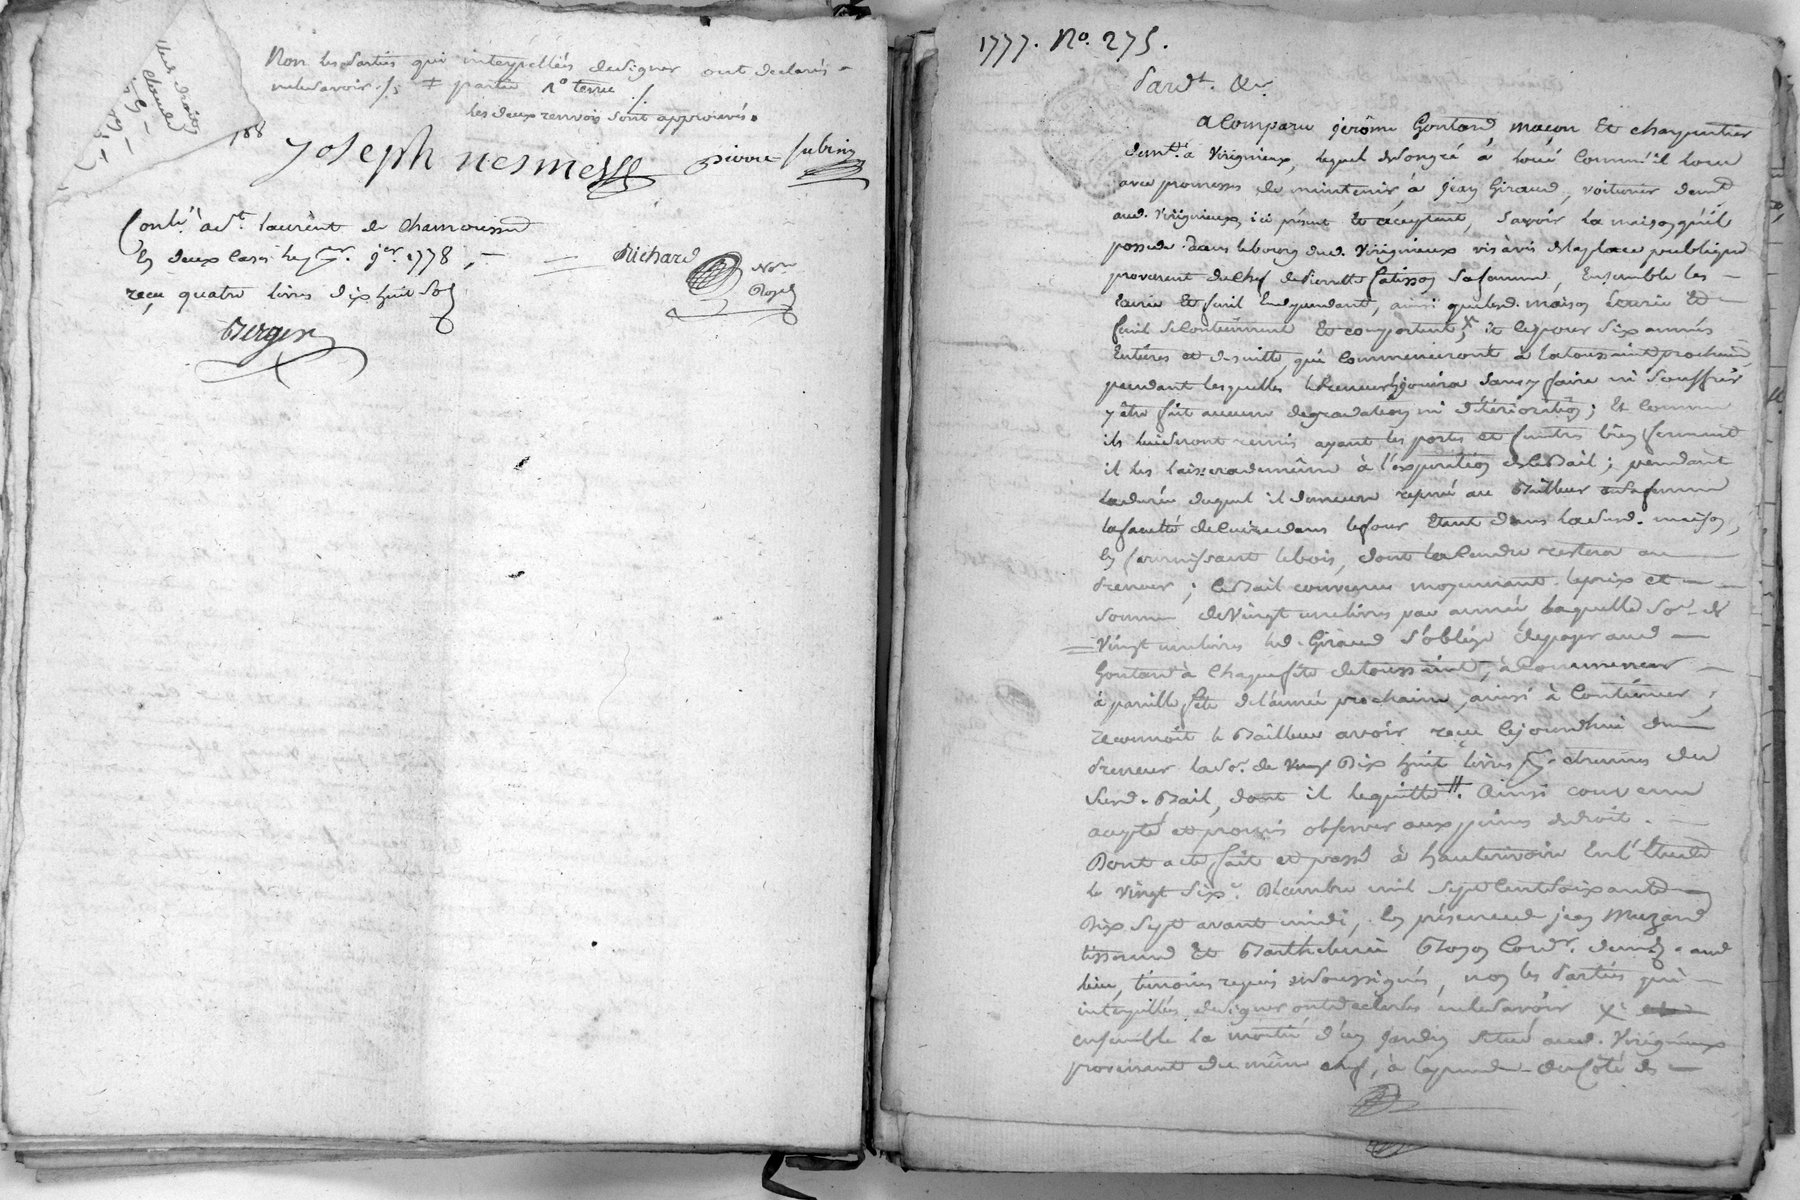 Non les parties qui interpellées de signer ont declarés
ne le savoir ./. ‡ partie 1° terre ./.
les deux renvois sont approuvés.
188
Joseph nesme pierre subrin
Contr. à St. laurent de Chamousset
le deux 1778
reçu quatre livres dix huit sols
Berger
Richard
Nore
Royal
1777. No. 275.
Pardt. &c.
a Comparu jerôme Goutard maçon Et charpentier
demt. à Virignieux, lequel de son gré à loué comme il loue
avec promesses de maintenir, à jean Giraud, voiturier demt.
aud. Virignieux, ici present Et aceptant, savoir la maison qu'il
possede dans le bourg dud. Virignieux vis à vis de la place publique
provenant du chef de pierrette fatisson sa femme, Ensemble les
Ecurie Et fenil En dependant, ainsi que lesd. maison Ecurie Et
fenil se Contiennent Et comportent, x et ce pour six années
Entières et de suitte, qui Commenceront à la toussaint prochaine
pendant lesquelles le Preneur jouira sans y faire ni souffrir
y être fait aucune degradation ni détérioration; Et comme
ils lui seront remis ayant les portes et fenêtres bien fermant
il les laissera de même à l'expiration de ce Bail; pendant
la durée duquel il demeure reservé au Bailleur et sa femme
la faculté de Cuire dans le four Etant dans lasusd. maison,
En fournissant le bois, dont la Cendre restera au
Preneur; ce Bail convenu moyennant le prix et
somme de vingt une livres par année laquelle so. de
vingt une livres led. Giraud s'oblige de payer aud.
Goutard à Chaque fête de toussaint, à Commencer
à pareille fête de l'année prochaine, ainsi à Continuer,
reconnoit le Bailleur avoir reçu ce jourdhui du
Preneur la so. de Dix huit livres pr. étrennes du
susd. Bail, dont il le quitte #. Ainsi convenu
acepté et promis observer aux peines de droit.
Dont acte fait et passé à hauterivoire En l'Etude
le vingt six. Décembre mil sept Cent soixante
Dix sept avant midi, En présence de jean Muzard
tisserand Et Barthelemi Cord. demt. aud.
lieu, témoins requis soussignés, non les Parties qui
interpellées de signer ont declarés ne le savoir x
ensemble la moitié d'un jardin situé aud. Virignieux
provenant du même chef, à la prendre du Côté de